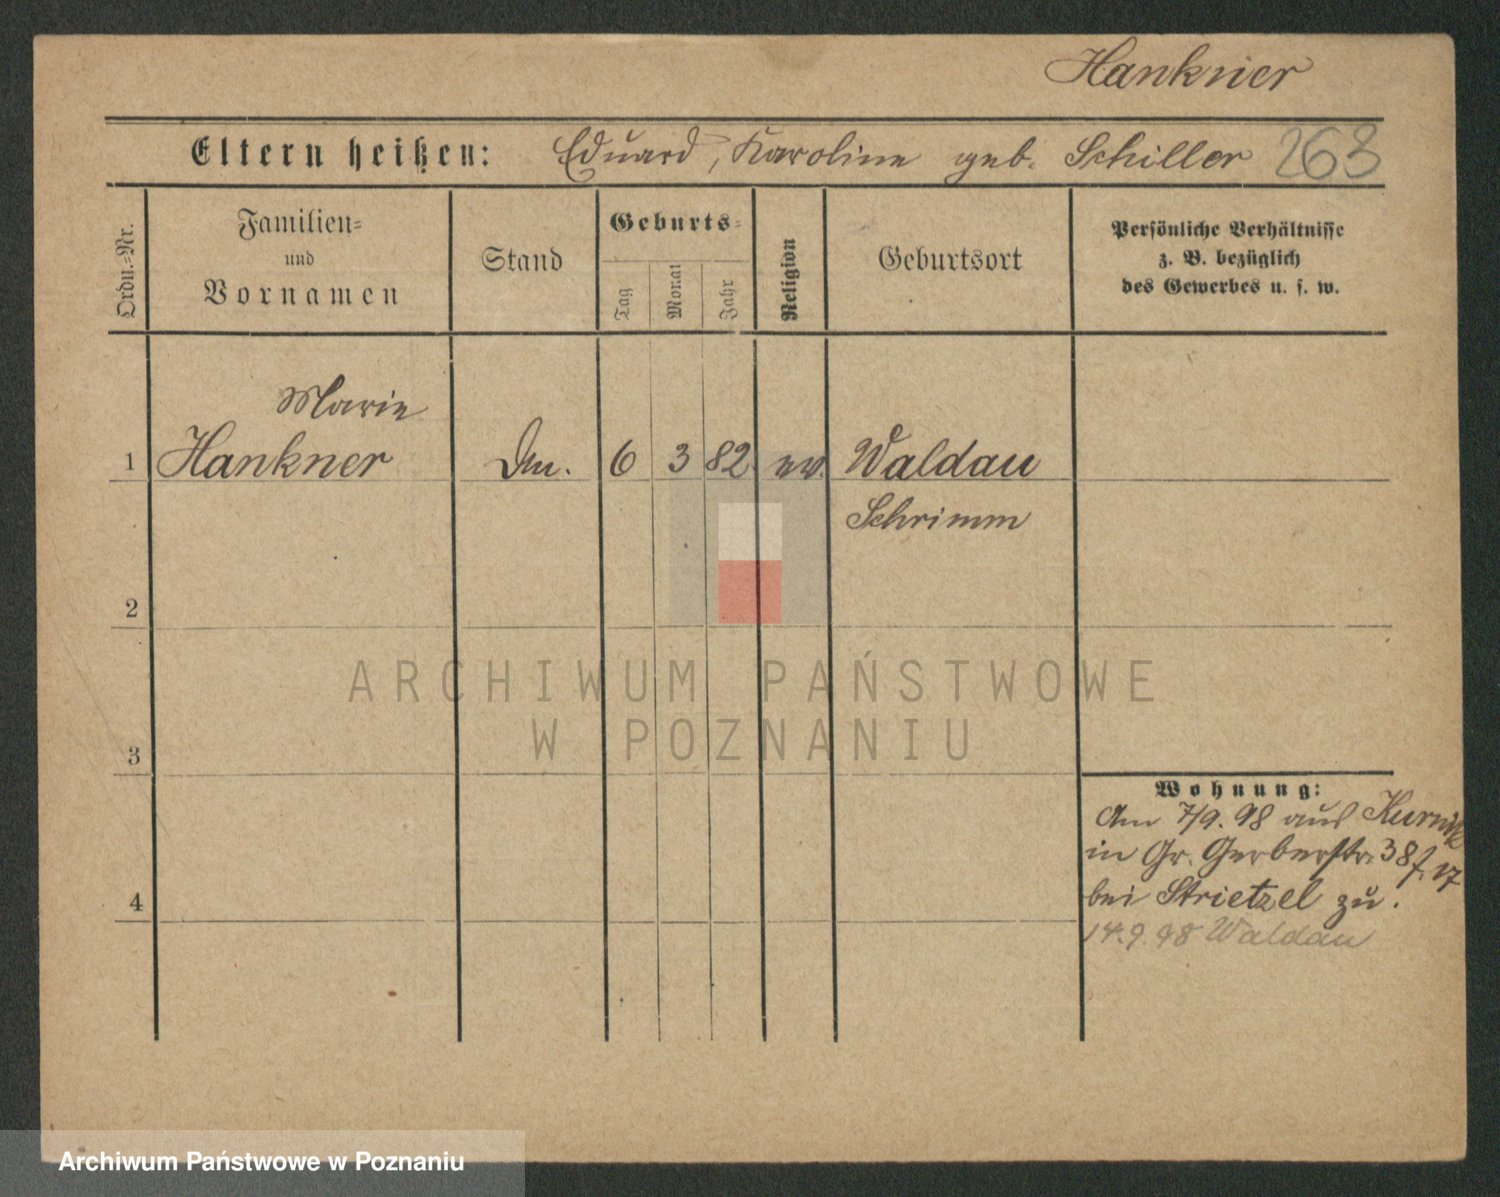 Hankner
Eltern heißen: Eduard, Karoline geb. Schiller 263
Ordn.=Nr.
Familien=
und
Vornamen
Stand
Geburts=
Tag
Monat
Jahr
Religion
Geburtsort
Persönliche Verhältnisse
z. B. bezüglich
des Gewerbes u. s. w.
Marie
1 Hankner 6 3 82 ev. Waldau
Schrimm
2
ARCHIWUM PAŃSTWOWE
W POZNANIU
3
Wohnung:
Am 7/9. 98 aus Kurnik
in Gr. Gerberstr. 38
bei Strietzel zu.
4
14.9.98 Waldau
Archiwum Państwowe w Poznaniu